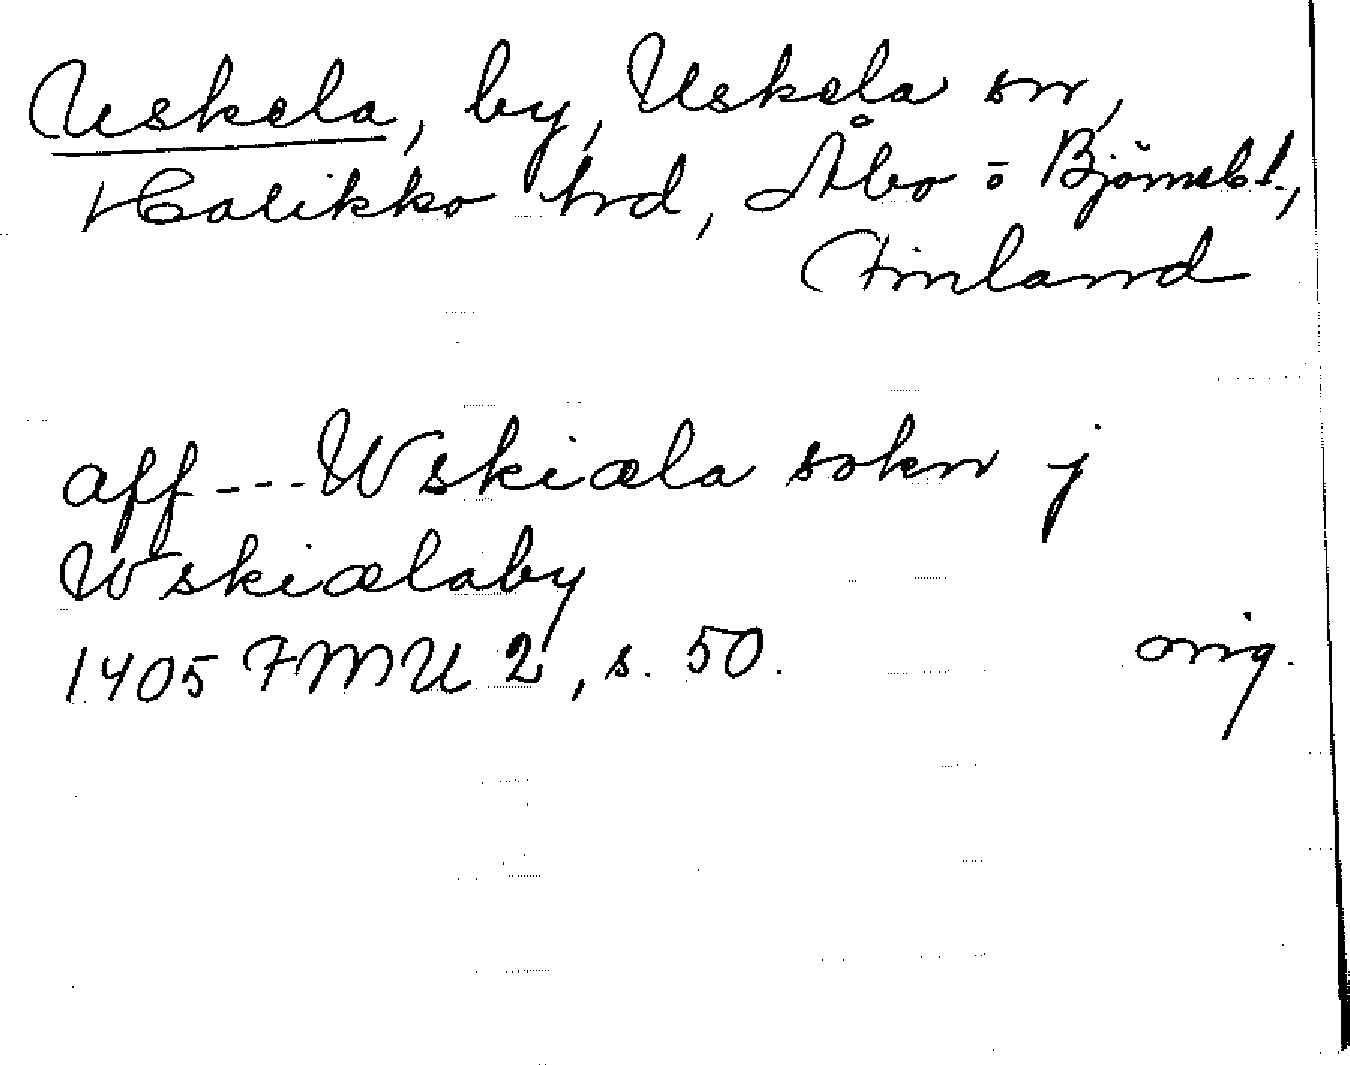 Uskela, by, Uskela sn,
Halikko hrd, Åbo o Björneb l.,
Finland
aff --- Wskiæla sokn j
Wskiælaby
1405 FMU 2, s. 50. orig.